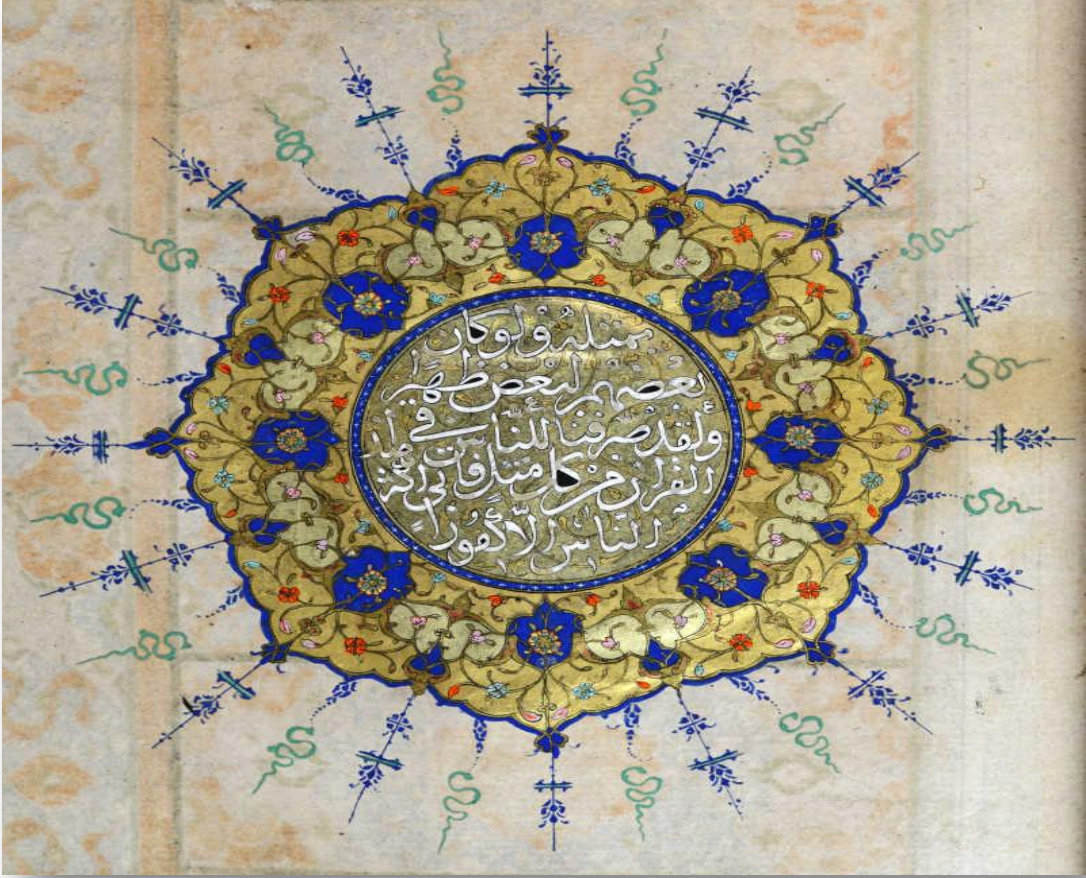 بمثله ولو كان
بعضهم لبعض ظهيرا
ولقد صرفنا للناس في هذا
القرآن من كل مثل فأبى أكثر
الناس إلا كفورا